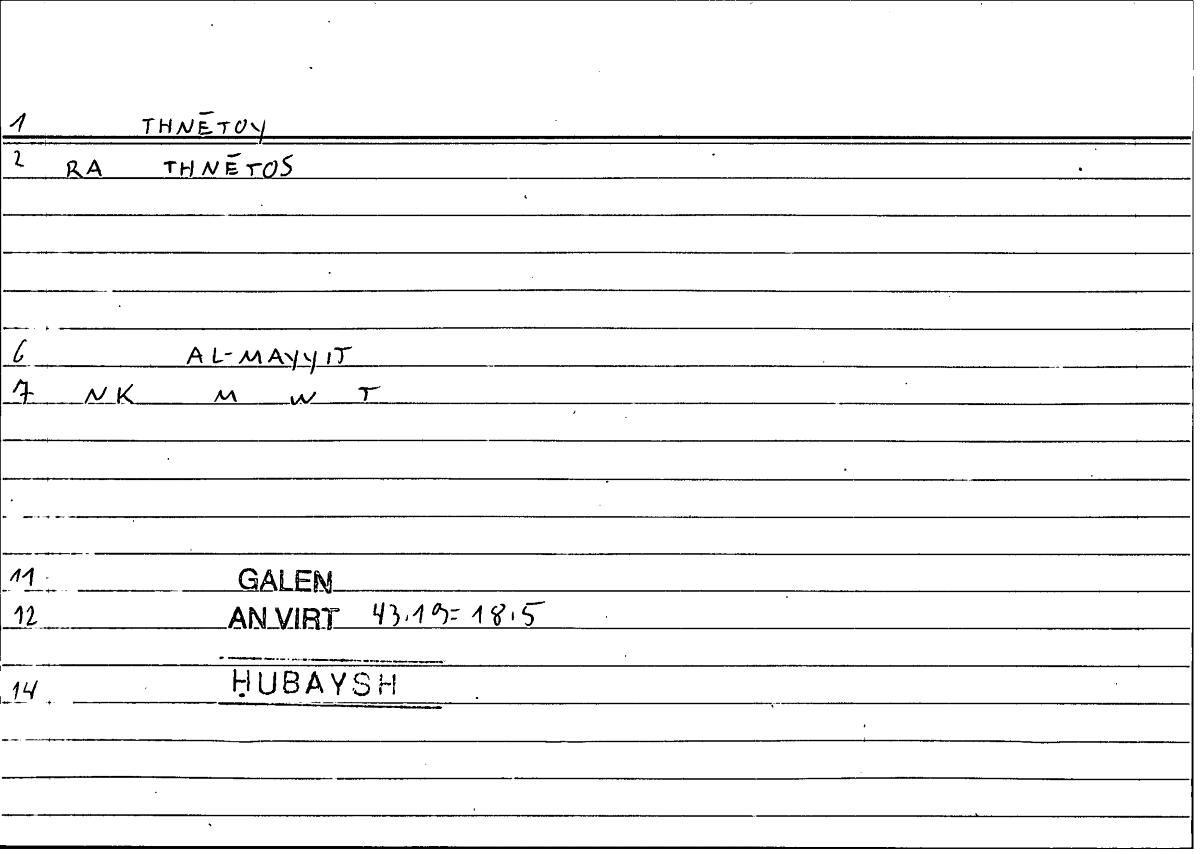 1 THNĒTOY
2 RA THNĒTOS
6 AL-MAYYIT
7 NK M W T
11 GALEN
12 AN VIRT 43.19=18.5
14 ḤUBAYSH